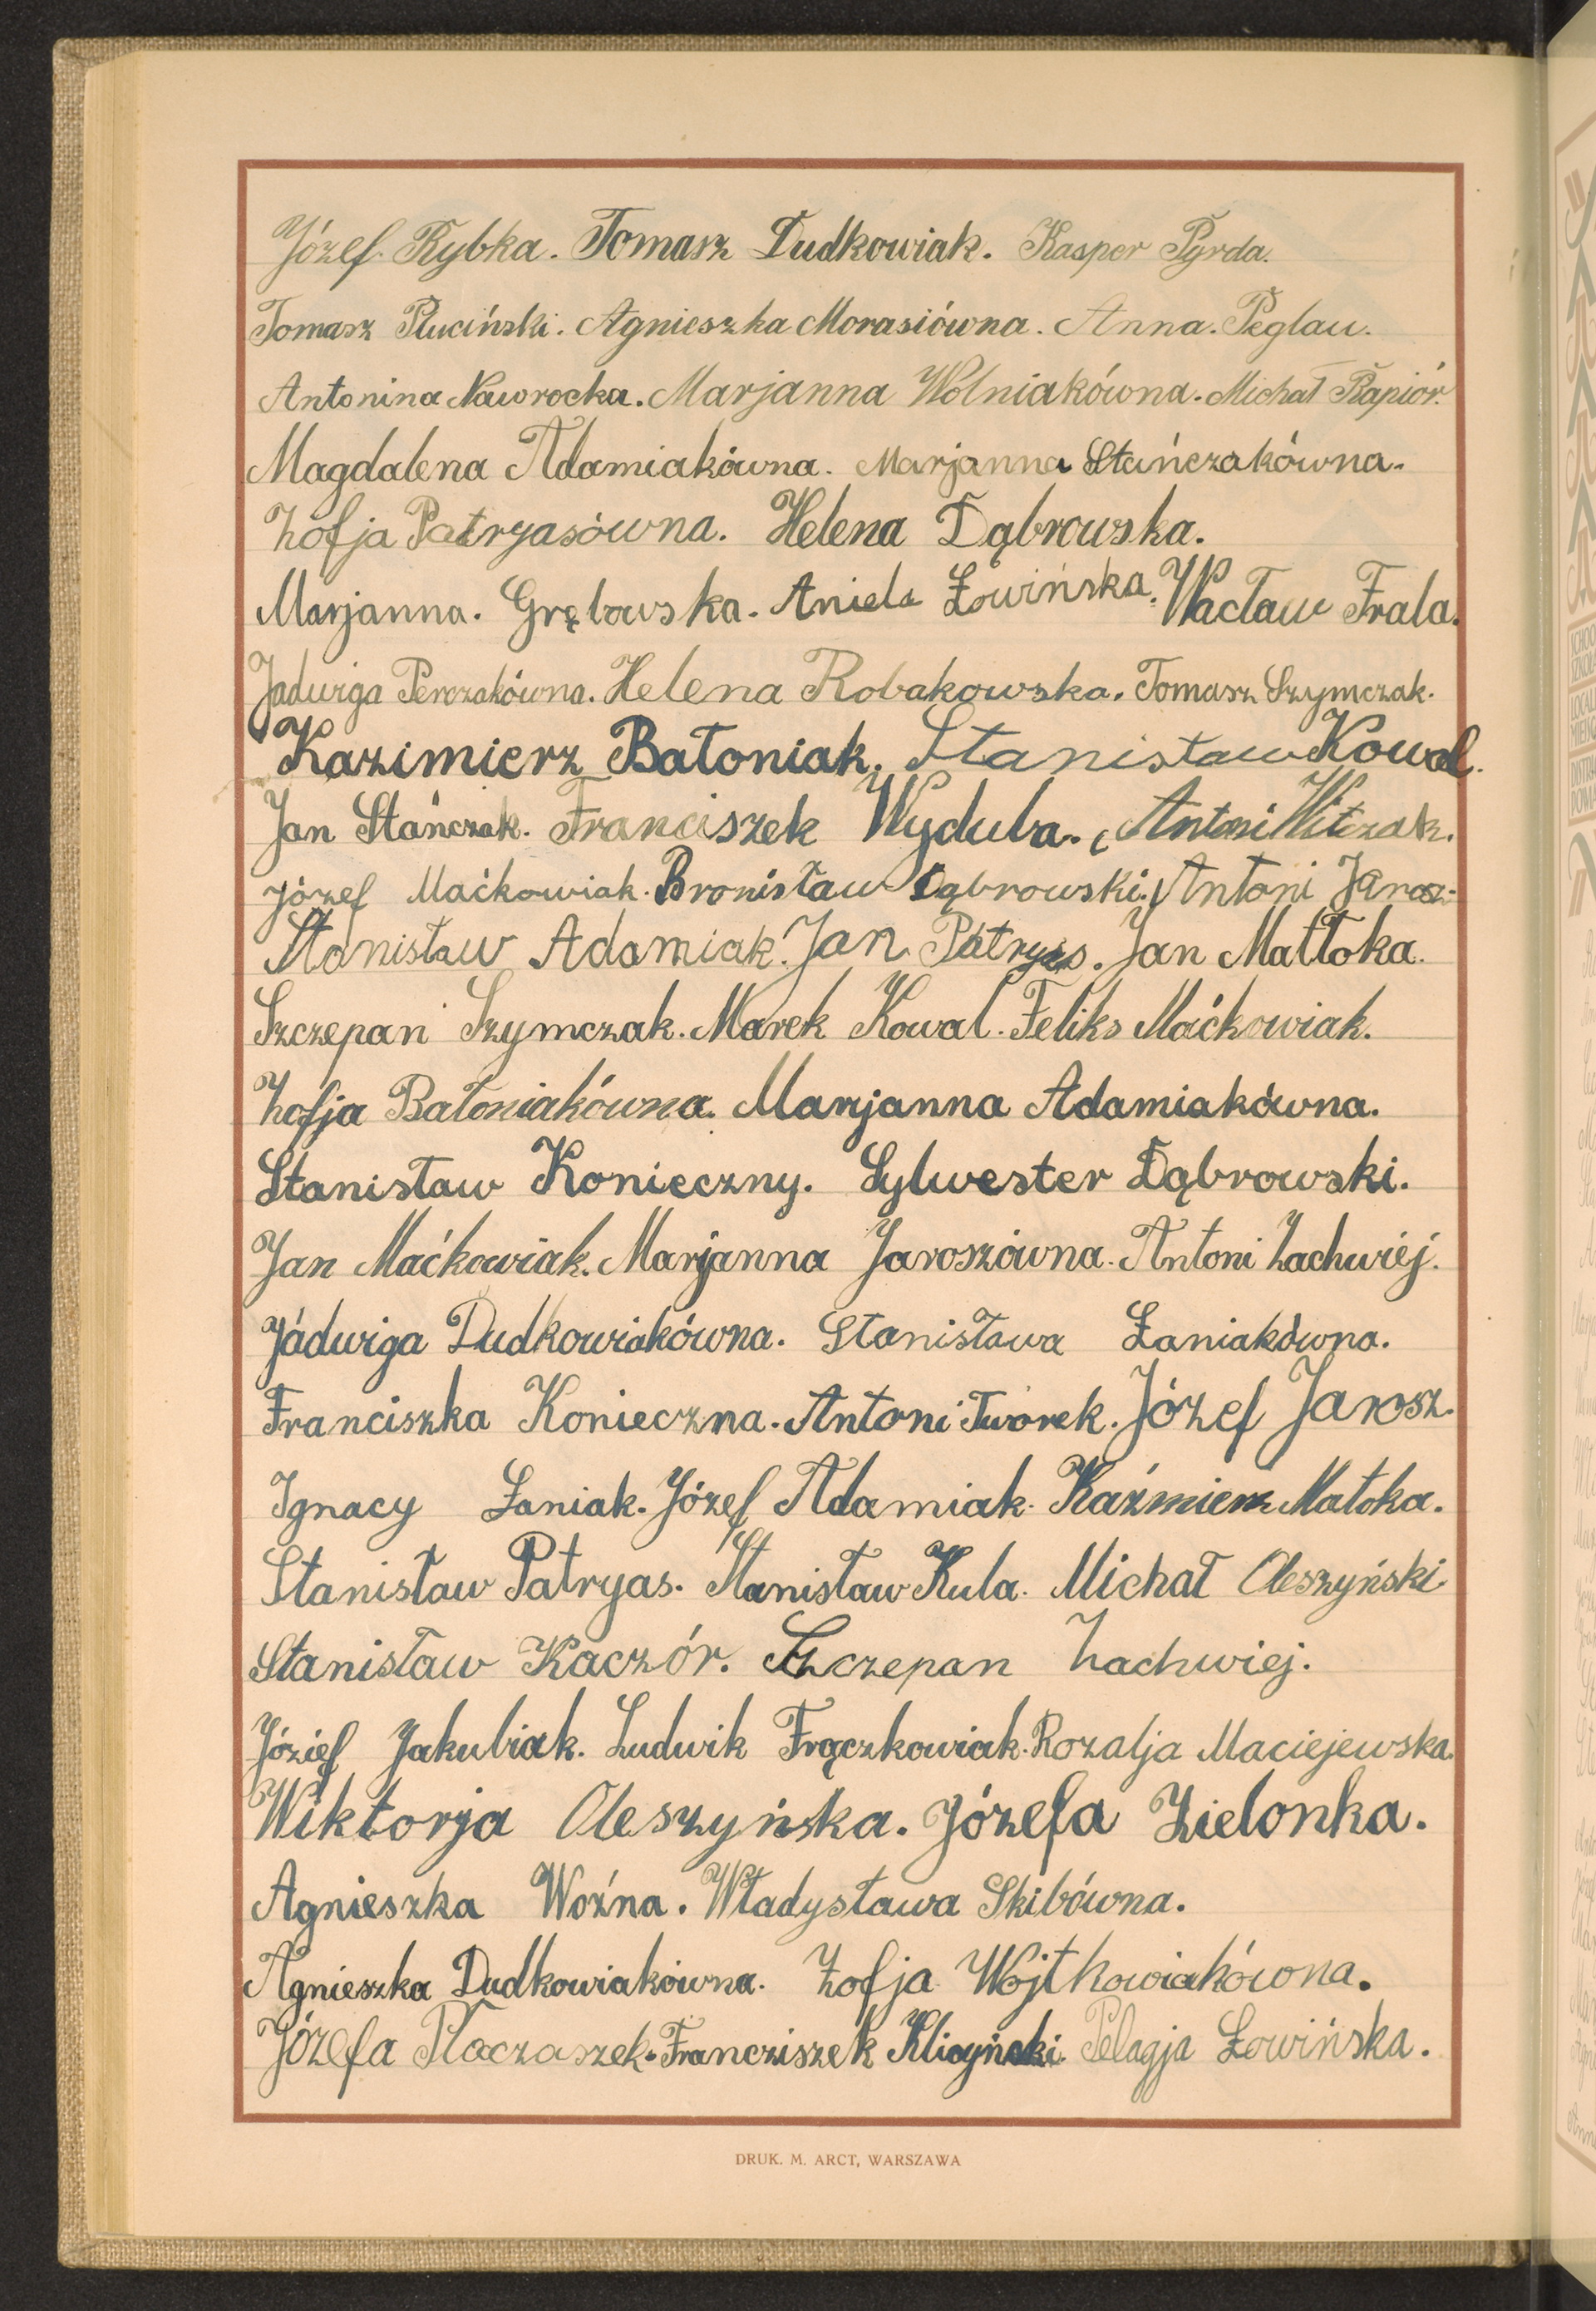 Józef. Rybka. Tomasz Dudkowiak. Kasper Pyrda.
Tomasz Pluciński. Agnieszka Morasiówna. Anna. Peglau.
Antonina Nawrocka. Marjanna Wolniakówna. Michał Rapiór.
Magdalena Adamiakówna. Marjanna Stańczakówna.
Zofja Patryasówna. Helena Dąbrowska.
Marjanna. Grębowska. Aniela Łowińska. Wacław Frala.
Jadwiga Perczakówna. Helena Robakowska. Tomasz Szymczak.
Kazimierz Batoniak. Stanisław Kowal.
Jan Stańczak. Franciszek Wyduba. Antoni Witczak.
Józef Maćkowiak. Bronisław Dąbrowski. Antoni Jarosz.
Stanisław Adamiak. Jan Patryas. Jan Mattoka.
Szczepan Szymczak. Marek Kowal. Feliks Maćkowiak.
Zofja Batoniakówna. Marjanna Adamiakówna.
Stanisław Konieczny. Sylwester Dąbrowski.
Jan Maćkowiak. Marjanna Jaroszówna. Antoni Zachwiej.
Jadwiga Dudkowiakówna. Stanisława Łaniakówna.
Franciszka Konieczna. Antoni Tworek. Józef Jarosz.
Ignacy Łaniak. Józef Adamiak. Kaźmierz Matoka.
Stanisław Patryas. Stanisław Kula. Michał Oleszyński
Stanisław Kaczór. Szczepan Zachwiej.
Józief Jakubiak. Ludwik Frączkowiak. Rozalja Maciejewska.
Wiktorja Oleszyńska. Józefa Zielonka.
Agnieszka Woźna. Władysława Skibówna.
Agnieszka Dudkowiakówna. Zofja Wojtkowiakówna.
Józefa Płaczaszek. Francziszek Pelagja Łowińska.
DRUK. M. ARCT, WARSZAWA